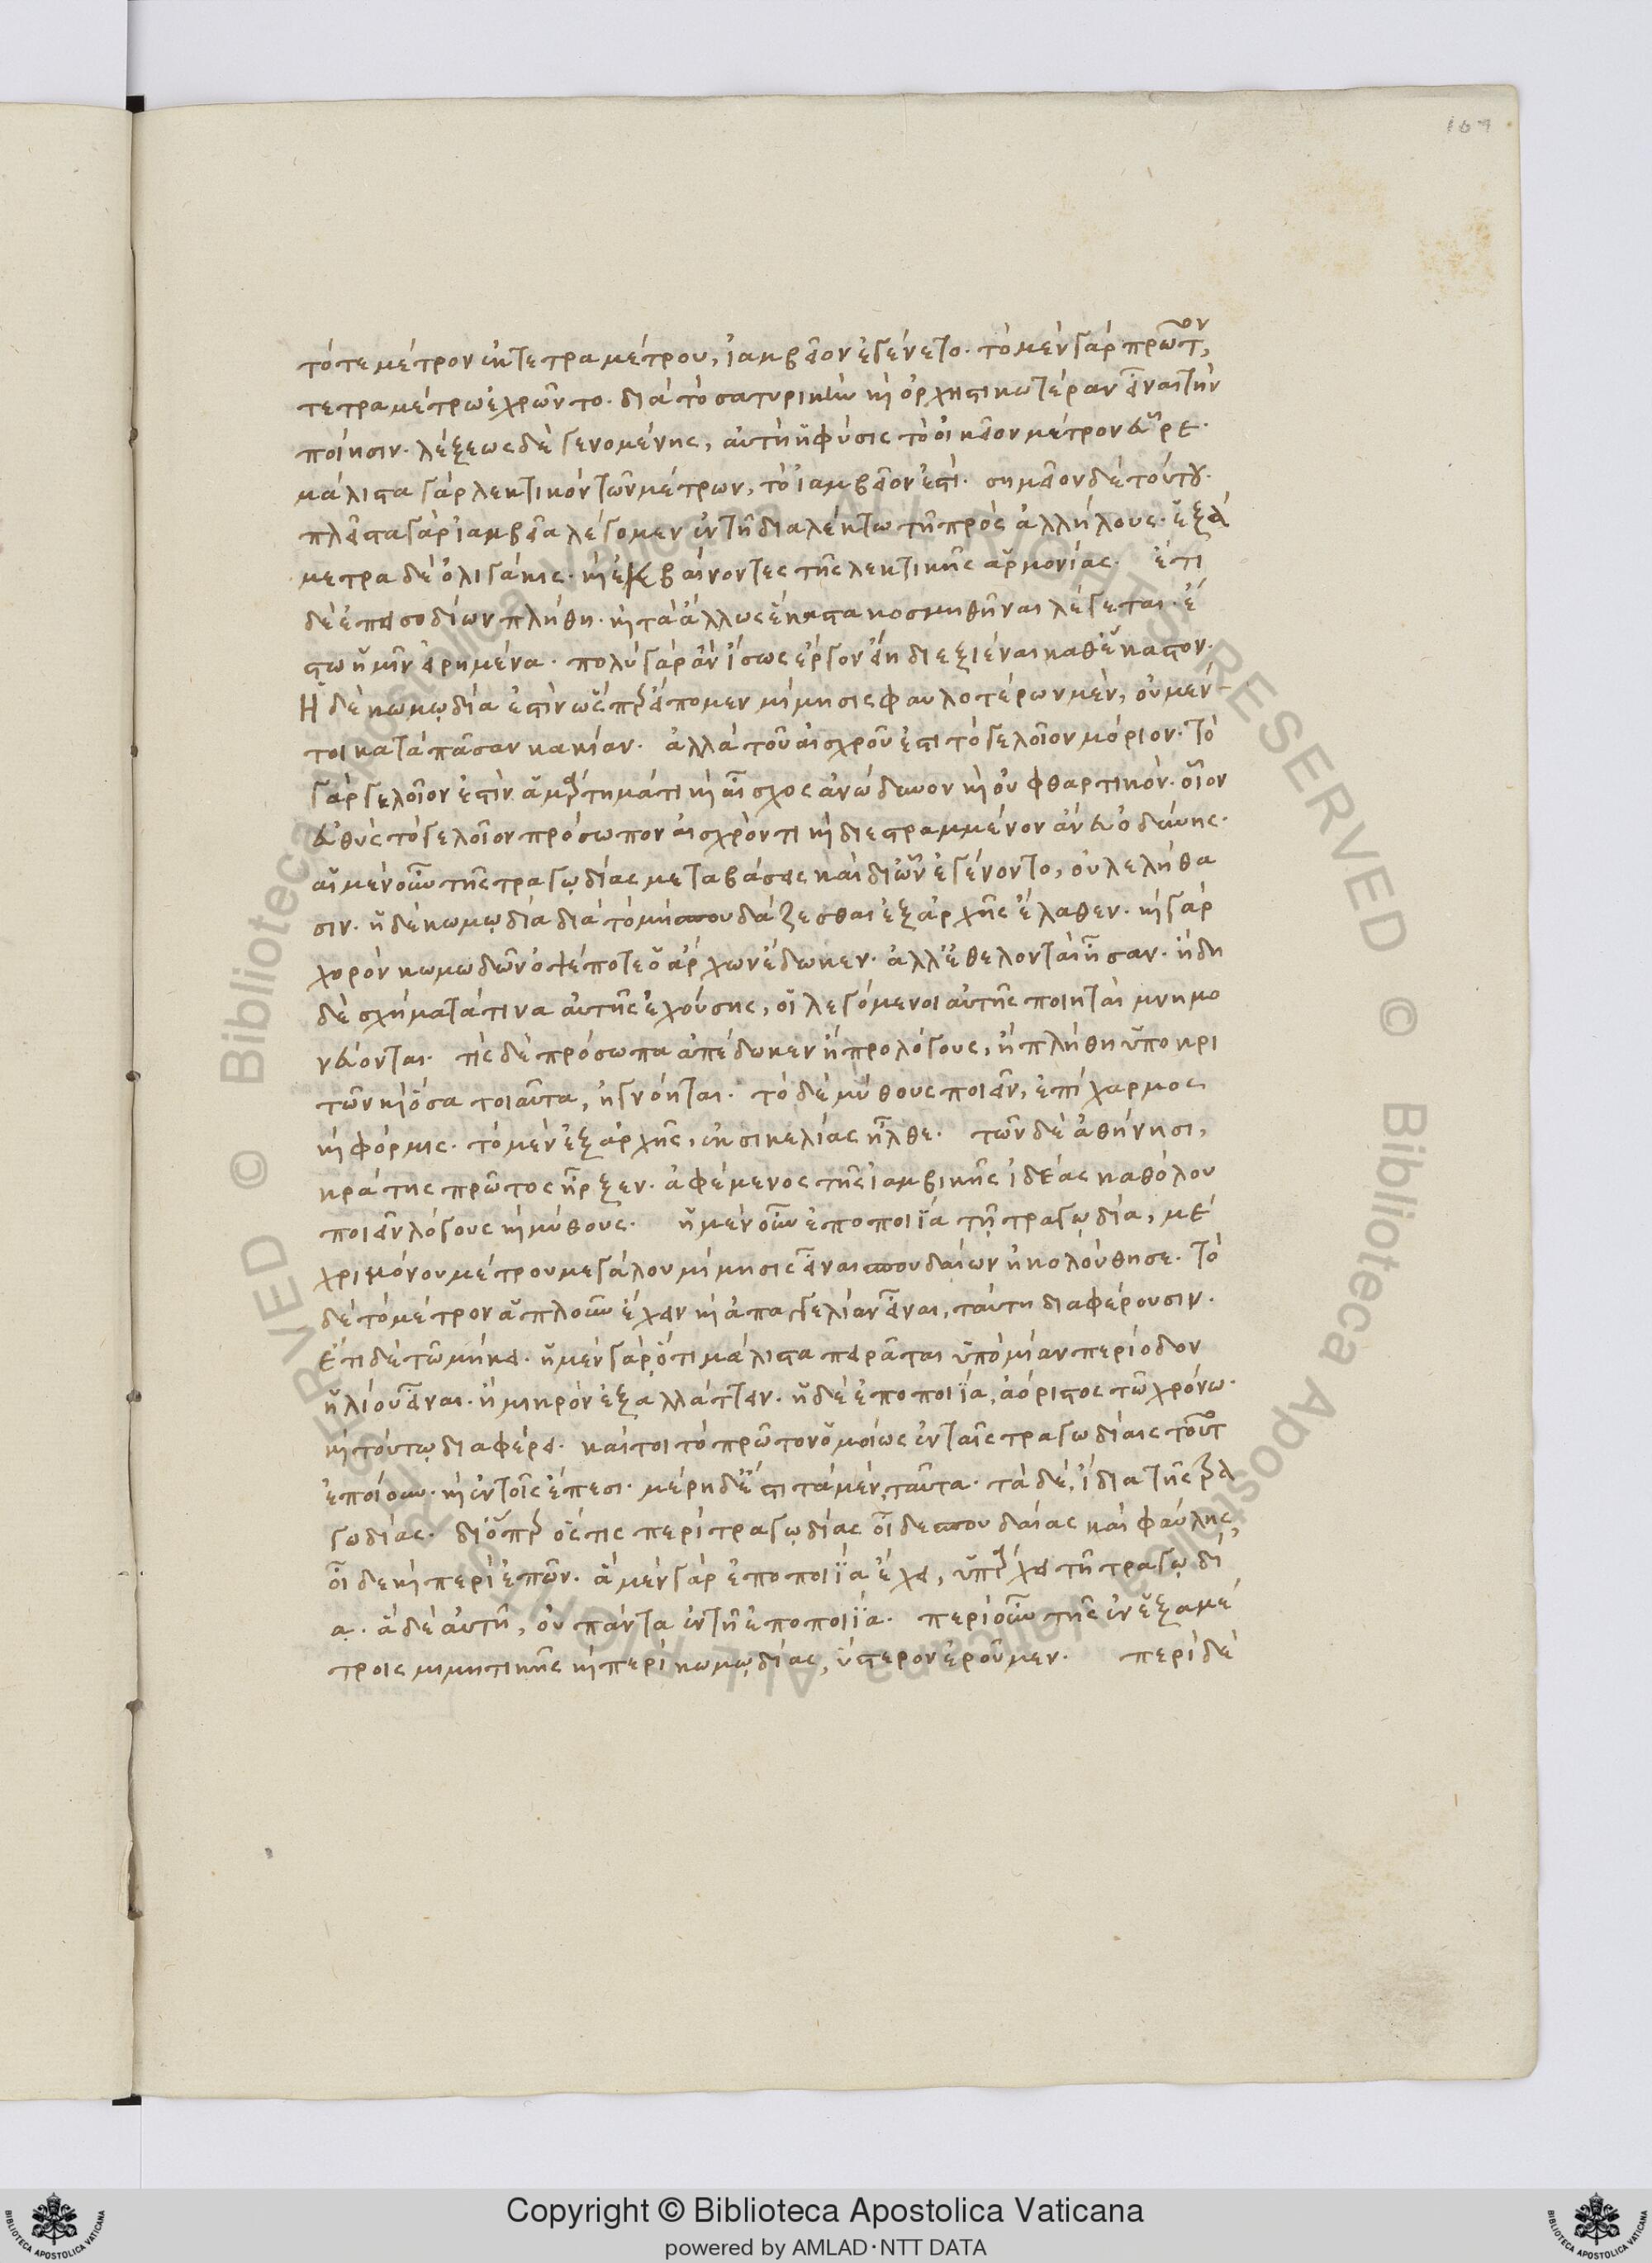 169
τό τε μέτρον ἐκ τετραμέτρου, ἰαμβεῖον ἐγένετο· τὸ μὲν γὰρ πρῶτον,
τετραμέτρω ἐχρῶντο· διὰ τὸ σατυρικὴν καὶ ὀρχηστικωτέραν εἶναι τὴν
ποίησιν· λέξεως δὲ γενομένης, αὐτὴ ἡ φύσις τὸ οἰκεῖον μέτρον εὗρε·
μάλιστα γὰρ λεκτικὸν τῶν μέτρων, τὸ ἰαμβεῖον ἐστί· σημεῖον δὲ τούτου·
πλεῖστα γὰρ ἰαμβεῖα λέγομεν ἐν τῆ διαλέκτω τῆ πρὸς ἀλλήλους· ἑξά
μετρα δὲ ὀλιγάκις· καὶ ἐκβαίνοντες τῆς λεκτικῆς ἁρμονίας· ἔτι
δὲ ἐπεισοδίων πλήθη· καὶ τὰ ἄλλως ἕκαστα κοσμηθῆναι λέγεται· ἔ
στω ἡμῖν εἰρημένα· πολὺ γὰρ ἂν ἴσως ἔργον εἴη διεξιέναι καθ' ἕκαστον·
Ἡ δὲ κωμῳδία ἐστὶν ὥσπερ εἴπομεν μίμησις φαυλοτέρων μὲν, οὐ μέν-
τοι κατὰ πᾶσαν κακίαν· ἀλλὰ τοῦ αἰσχροῦ ἐστι τὸ γελοῖον μόριον· τὸ
γὰρ γελοῖον ἐστὶν ἁμάρτημά τι καὶ αἶσχος ἀνώδυνον καὶ οὐ φθαρτικόν· οἷον
εὐθὺς τὸ γελοῖον πρόσωπον αἰσχρόν τι καὶ διεστραμμένον ἄνευ ὀδύνης·
αἱ μὲν οὖν τῆς τραγῳδίας μεταβάσεις καὶ δι' ὧν ἐγένοντο, οὐ λελήθα
σιν· ἡ δὲ κωμῳδία διὰ τὸ μὴ σπουδάζεσθαι ἐξ ἀρχῆς ἔλαθεν· καὶ γὰρ
χορὸν κωμωδῶν ὀψέ ποτε ὁ ἄρχων ἔδωκεν· ἀλλ' ἐθελονταὶ ἦσαν· ἤδη
δὲ σχήματά τινα αὐτῆς ἐχούσης, οἱ λεγόμενοι αὐτῆς ποιηταὶ μνημο
νεύονται· τίς δὲ πρόσωπα ἀπέδωκεν ἢ προλόγους, ἢ πλήθη ὑποκρι
τῶν καὶ ὅσα τοιαῦτα, ἠγνόηται· τὸ δὲ μύθους ποιεῖν, ἐπίχαρμος
καὶ φόρμις· τὸ μὲν ἐξ ἀρχῆς, ἐκ σικελίας ἦλθε· τῶν δὲ ἀθήνησι,
κράτης πρῶτος ἦρξεν· ἀφέμενος τῆς ἰαμβικῆς ἰδέας καθόλου
ποιεῖν λόγους καὶ μύθους· ἡ μὲν οὖν ἐποποιΐα τῇ τραγῳδία, μέ
χρι μόνου μέτρου μεγάλου μίμησις εἶναι σπουδαίων ἠκολούθησε· τὸ
δὲ τὸ μέτρον ἁπλοῦν ἔχειν καὶ ἀπαγγελίαν εἶναι, ταύτη διαφέρουσιν·
ἔτι δὲ τῶ μήκει· ἡ μὲν γὰρ ὅτι μάλιστα πειρᾶται ὑπὸ μίαν περίοδον
ἡλίου εἶναι· ἢ μικρὸν ἐξαλλάττειν· ἡ δὲ ἐποποιΐα, ἀόριστος τῶ χρόνω·
καὶ τούτῳ διαφέρει· καίτοι τὸ πρῶτον ὁμοίως ἐν ταῖς τραγωδίαις τοῦτο
ἐποίουν· καὶ ἐν τοῖς ἔπεσι· μέρη δ' ἐστι τὰ μὲν, ταῦτα· τὰ δὲ, ἴδια τῆς τρα
γωδίας· διόπερ ὅστις περὶ τραγῳδίας οἶδε σπουδαίας καὶ φαύλης,
οἶδε καὶ περὶ ἐπῶν· ἃ μὲν γὰρ ἐποποιΐα ἔχει, ὑπάρχει τῆ τραγῳδί
ᾳ· ἃ δὲ αὐτῆ, οὐ πάντα ἐν τῆ ἐποποιΐα· περὶ οὖν τῆς ἐν ἑξαμέ
τροις μιμητικῆς καὶ περὶ κωμῳδίας, ὕστερον ἐροῦμεν· περὶ δὲ
© Biblioteca Apostolica Vaticana ALL RIGHTS RESERVED © Biblioteca Apostolica Vaticana ALL RIGHTS RESERVED
Copyright © Biblioteca Apostolica Vaticana
powered by AMLAD·NTT DATA
BIBLIOTECA APOSTOLICA VATICANA
BIBLIOTECA APOSTOLICA VATICANA